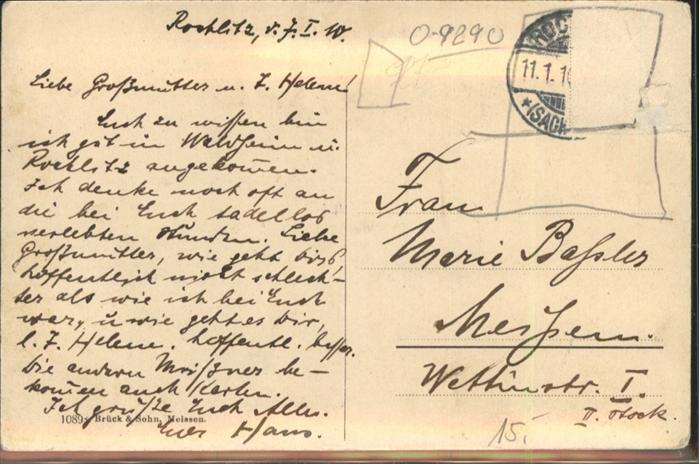 Rochlitz, d. 7. I. 10.
Liebe Großmutter u. T. Helene!
Euch zu wissen bin
ich gut in Waldheim u.
Rochlitz angekommen.
Ich denke noch oft an
die bei Euch tadellos
verlebten Stunden. Liebe
Großmutter, wie geht Dirs?
hoffentlich nicht schlech-
ter als wie ich bei Euch
war, u. wie geht es Dir,
l. T. Helene. hoffentl. besser.
Die andern Meißner be-
kommen auch Karten.
Ich grüße Euch Alle.
Euer Hans.
1089 Brück & Sohn, Meissen.
0-9290
11.1.1
*(SACH
Frau
Marie Baßler
Meissen.
Wettinstr. I.
II. Stock.
15.-